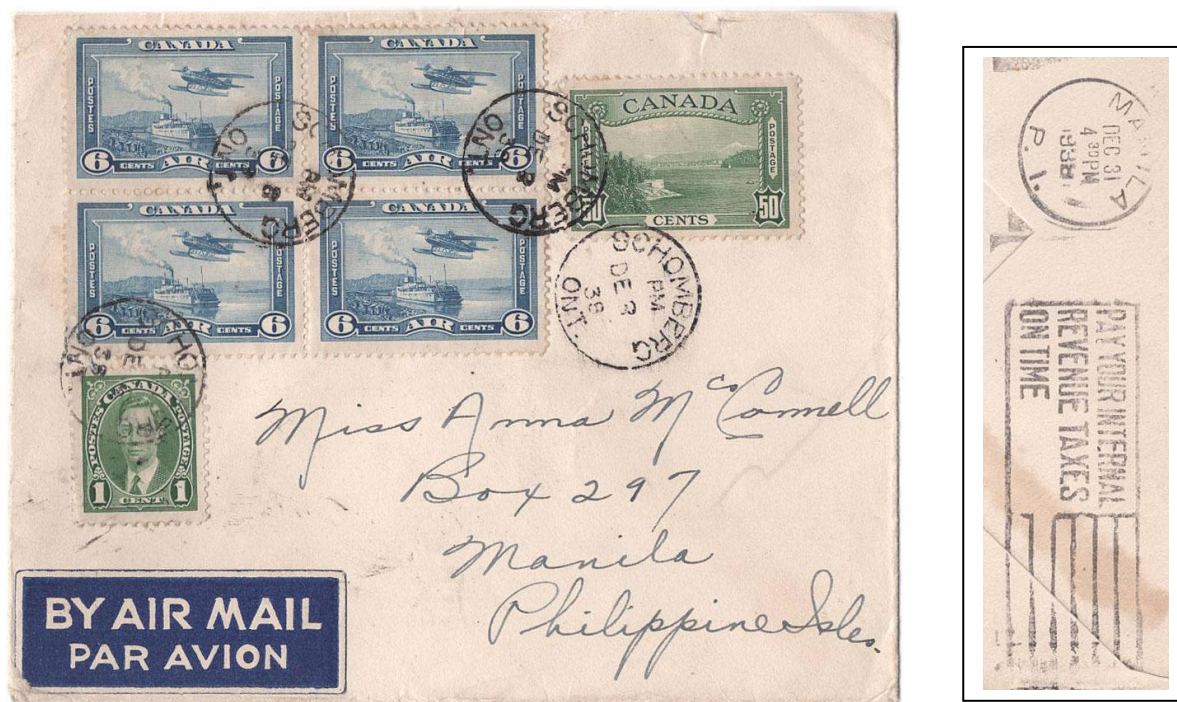 CANADA
POSTES
POSTAGE
6 CENTS AIR 6
CANADA
POSTES
POSTAGE
6 CENTS AIR 6
CANADA
POSTES
POSTAGE
6 CENTS AIR 6
CANADA
POSTES
POSTAGE
6 CENTS AIR 6
CANADA
POSTAGE
CENTS 50
SCHOMBERG
PM
DE
38
ONT.
POSTES CANADA POSTAGE
1 CENT 1
Miss Anna McConnell
Box 297
Manila
Philippine Isles.
BY AIR MAIL
PAR AVION
MANILA
DEC 31
4 30PM
1938
P. I.
PAY YOUR INTERNAL
REVENUE TAXES
ON TIME